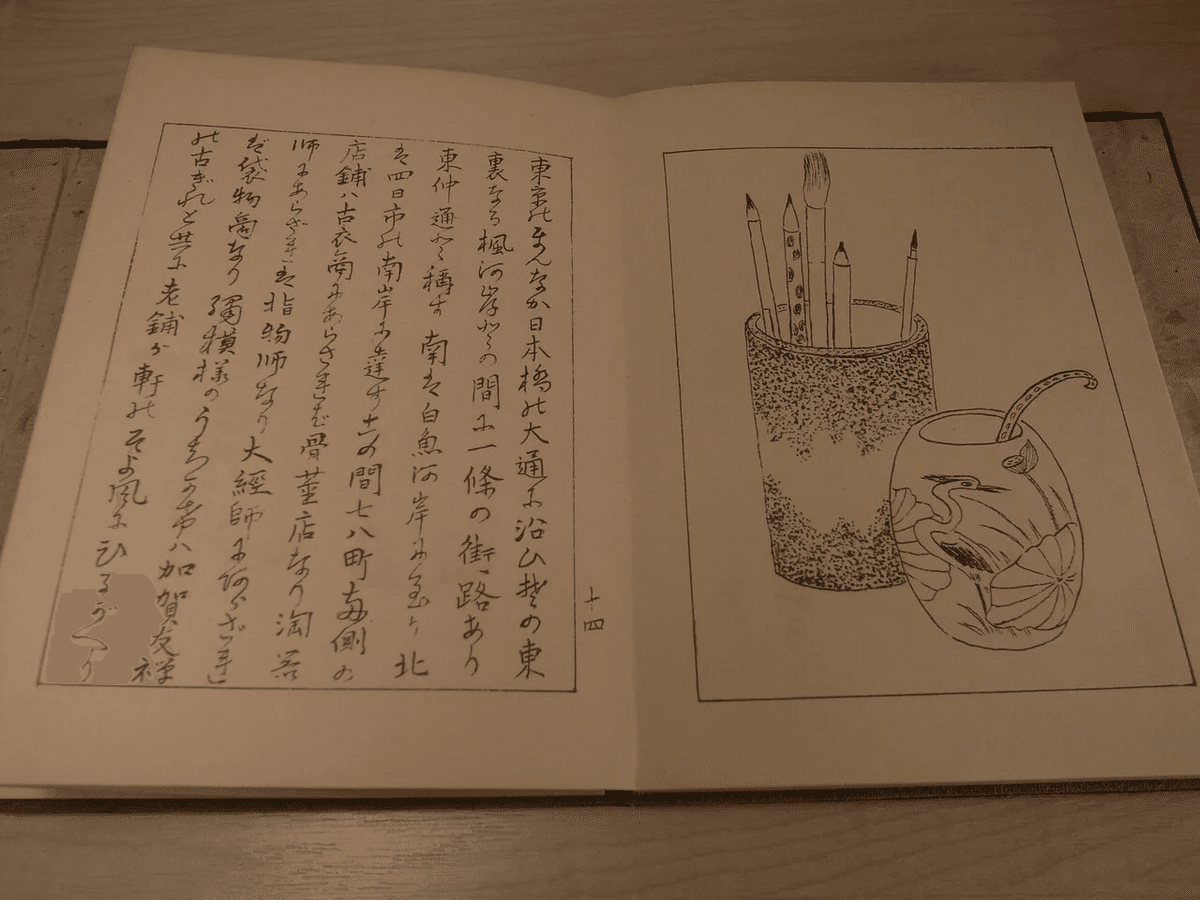 東京のまんなか日本橋の大通に沿ひ其の東
裏なる楓河岸との間に一條の街路あり
東仲通と稱す南は白魚河岸に至り北
は四日市の南岸に達す其の間七八町両側の
店舗ハ古衣商にあらざれば骨董店なり陶器
師にあらざれば指物師なり大經師にあらざれ
ば袋物商なり模様のうちかけハ加賀友禅
の古ぎれと共に老舗が軒のそよ風にひるがへり
十四